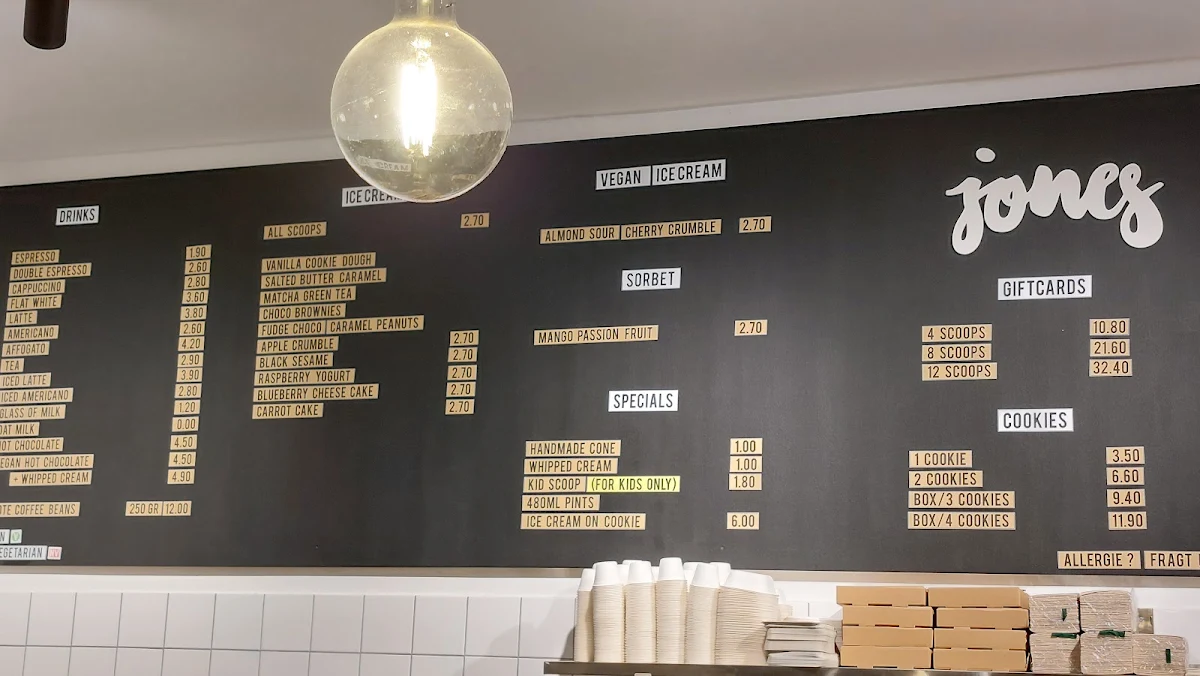 DRINKS
ESPRESSO 1.90
DOUBLE ESPRESSO 2.60
CAPPUCCINO 2.80
FLAT WHITE 3.60
LATTE 3.80
AMERICANO 2.60
AFFOGATO 4.20
TEA 2.90
ICED LATTE 3.90
ICED AMERICANO 2.80
GLASS OF MILK 1.20
OAT MILK 0.00
HOT CHOCOLATE 4.50
VEGAN HOT CHOCOLATE 4.50
+ WHIPPED CREAM 4.90
COFFEE BEANS 250 GR 12.00
ICE CREAM
ALL SCOOPS 2.70
VANILLA COOKIE DOUGH
SALTED BUTTER CARAMEL
MATCHA GREEN TEA
CHOCO BROWNIES
FUDGE CHOCO CARAMEL PEANUTS
APPLE CRUMBLE 2.70
BLACK SESAME 2.70
RASPBERRY YOGURT 2.70
BLUEBERRY CHEESE CAKE 2.70
CARROT CAKE 2.70
VEGAN ICE CREAM
ALMOND SOUR CHERRY CRUMBLE 2.70
SORBET
MANGO PASSION FRUIT 2.70
SPECIALS
HANDMADE CONE 1.00
WHIPPED CREAM 1.00
KID SCOOP (FOR KIDS ONLY) 1.80
480ML PINTS
ICE CREAM ON COOKIE 6.00
jones
GIFTCARDS
4 SCOOPS 10.80
8 SCOOPS 21.60
12 SCOOPS 32.40
COOKIES
1 COOKIE 3.50
2 COOKIES 6.60
BOX/3 COOKIES 9.40
BOX/4 COOKIES 11.90
ALLERGIE ? FRAGT